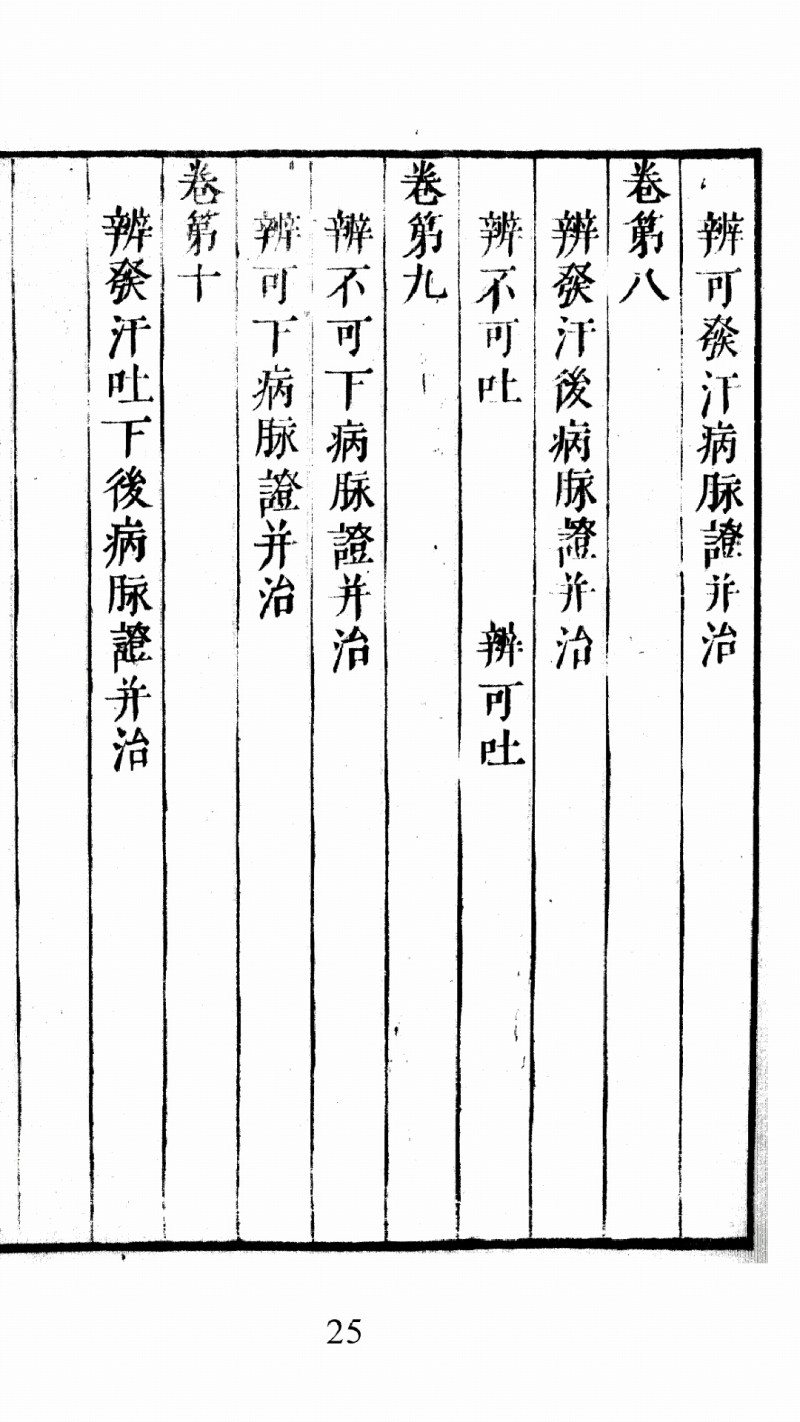 辨可發汗病脉證并治
卷第八
辨發汗後病脉證并治
辨不可吐 辨可吐
卷第九
辨不可下病脉證并治
辨可下病脉證并治
卷第十
辨發汗吐下後病脉證并治
25